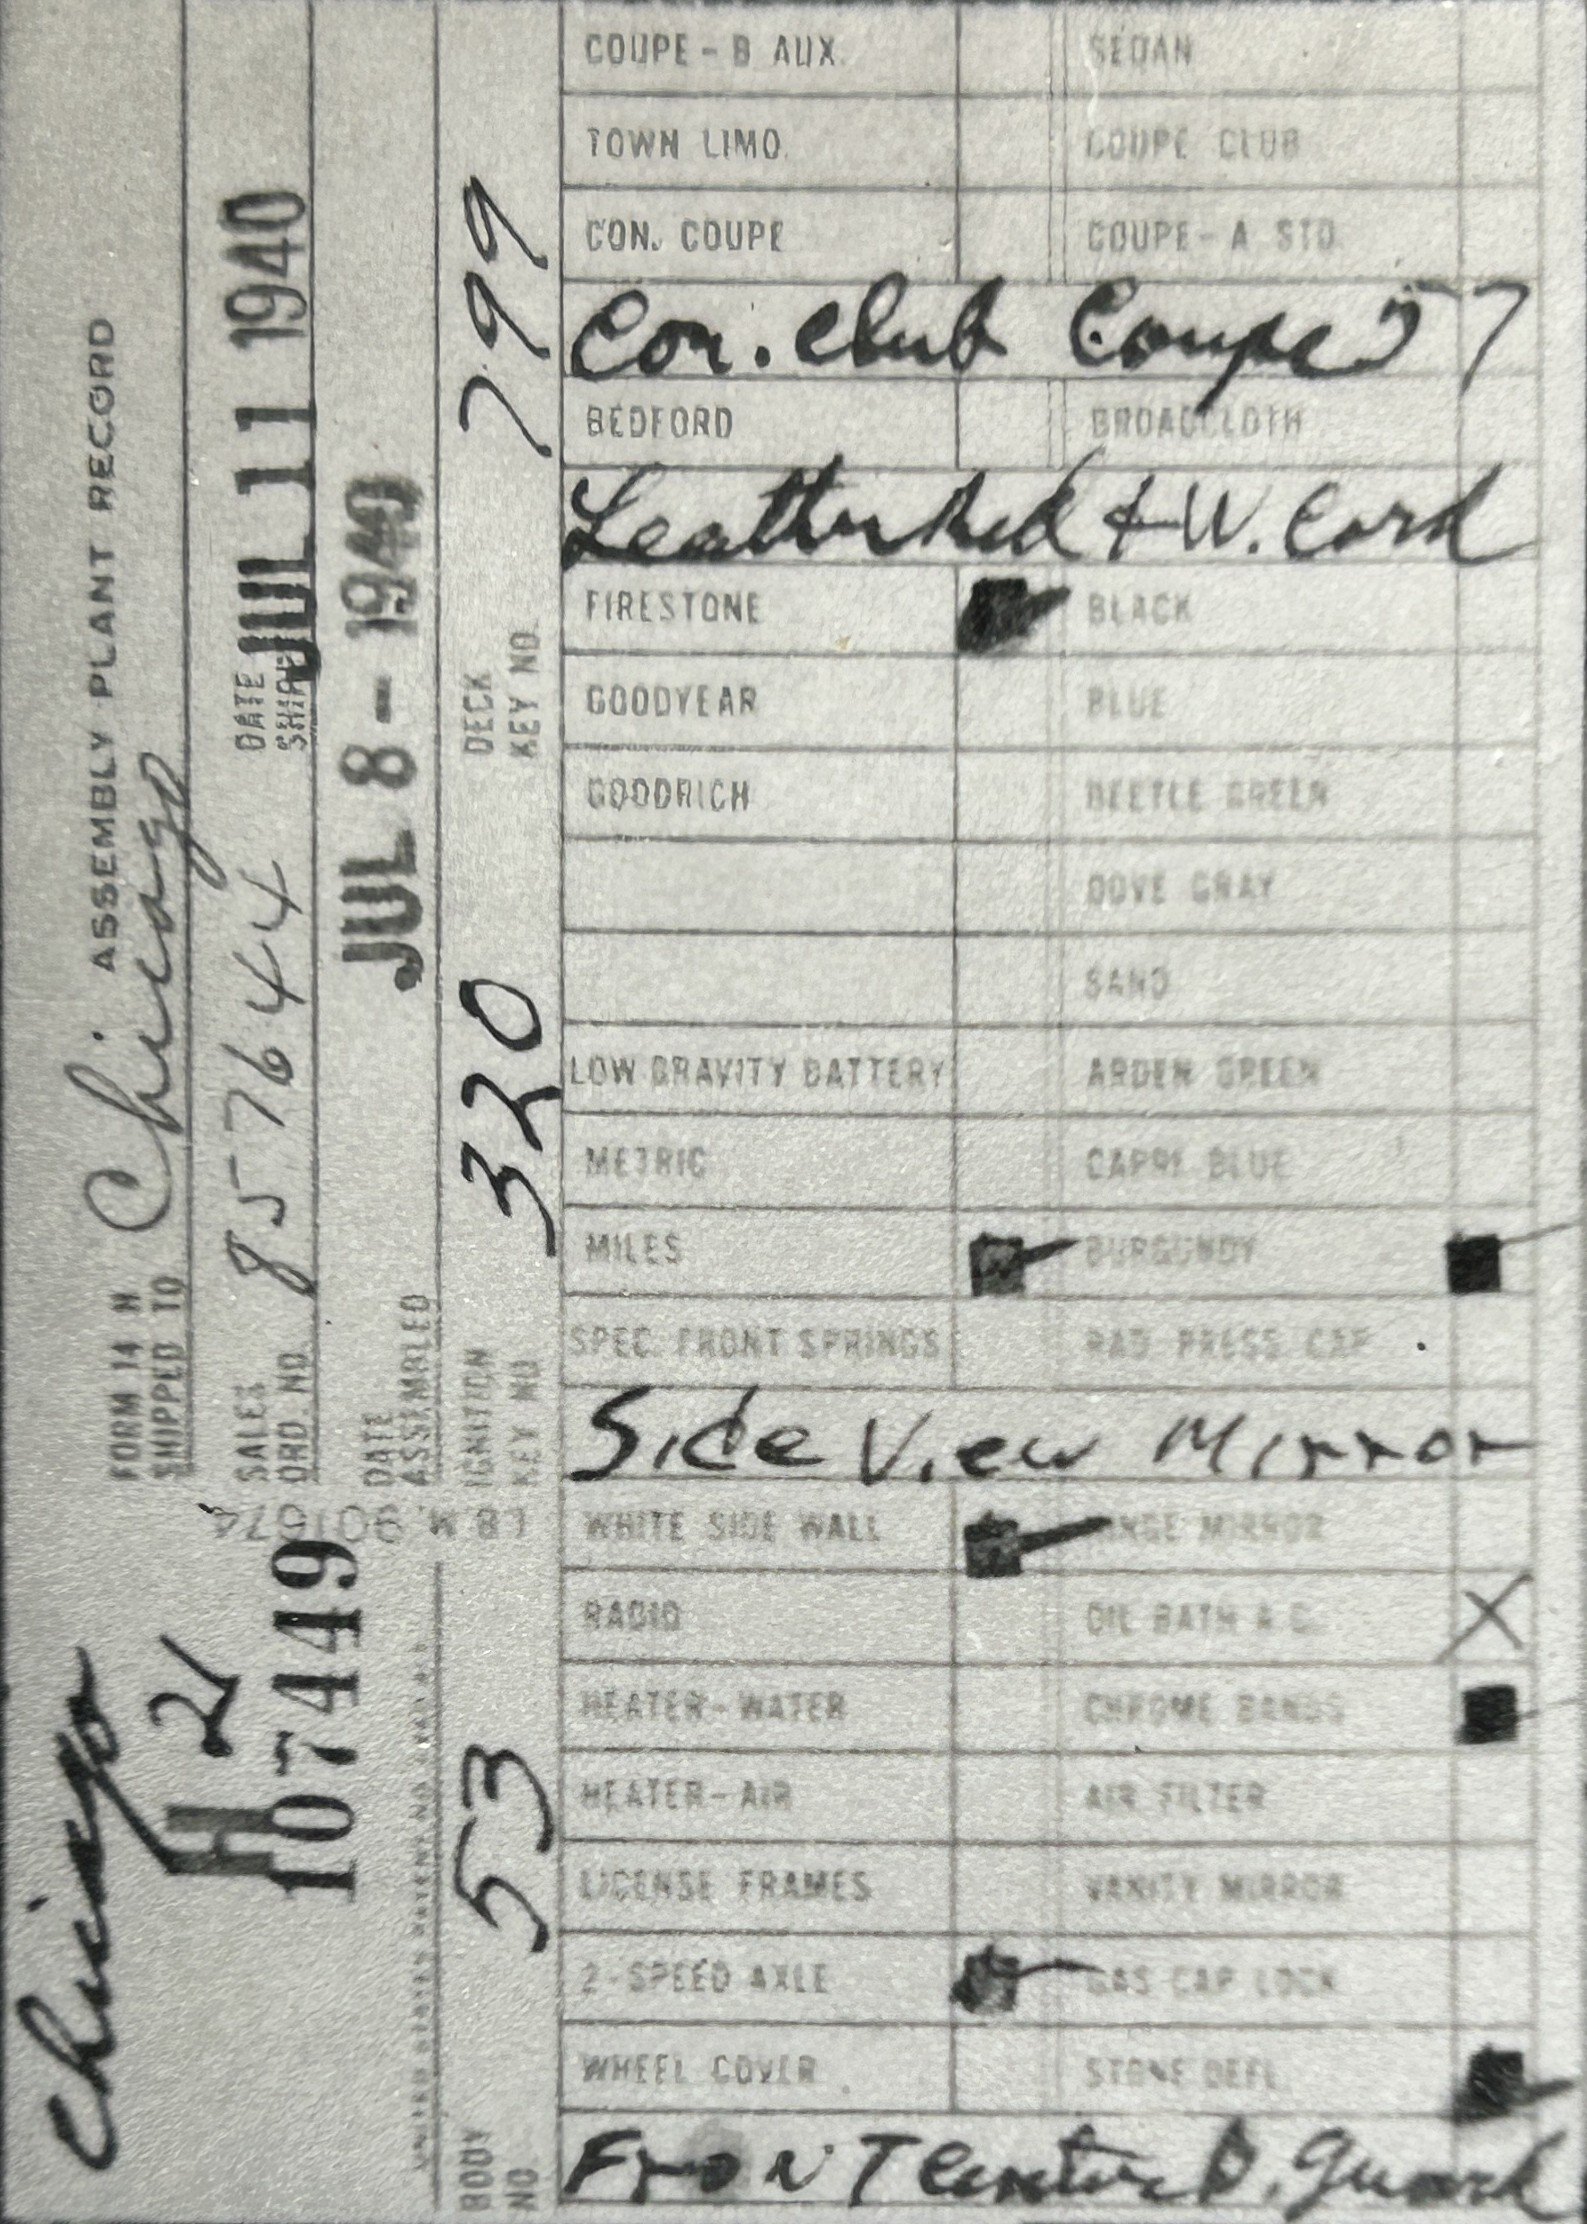 FORM 14 H ASSEMBLY PLANT RECORD
SHIPPED TO Chicago
SALES ORD. NO. 857644
DATE SHIP JUL 11 1940
DATE ASSEMBLED JUL 8 - 1940
IGNITION KEY NO 320
DECK KEY NO. 799
Chicago
21
H
107449
I.B.M.
BODY NO 53
COUPE - B AUX. SEDAN
TOWN LIMO. COUPE CLUB
CON. COUPE COUPE - A STD.
Con. Club Coupe 57
BEDFORD BROADCLOTH
Leather Red + W. Cord
FIRESTONE BLACK
GOODYEAR BLUE
GOODRICH BEETLE GREEN
DOVE GRAY
SAND
LOW GRAVITY BATTERY ARDEN GREEN
METRIC CAPRI BLUE
MILES BURGUNDY
SPEC. FRONT SPRINGS RAD PRESS CAP
Side View Mirror
WHITE SIDE WALL MIRROR
RADIO OIL BATH A.C. X
HEATER - WATER CHROME BANDS
HEATER - AIR AIR FILTER
LICENSE FRAMES VANITY MIRROR
2 - SPEED AXLE GAS CAP LOCK
WHEEL COVER STONE DEFL
FRONT Center B. Guard